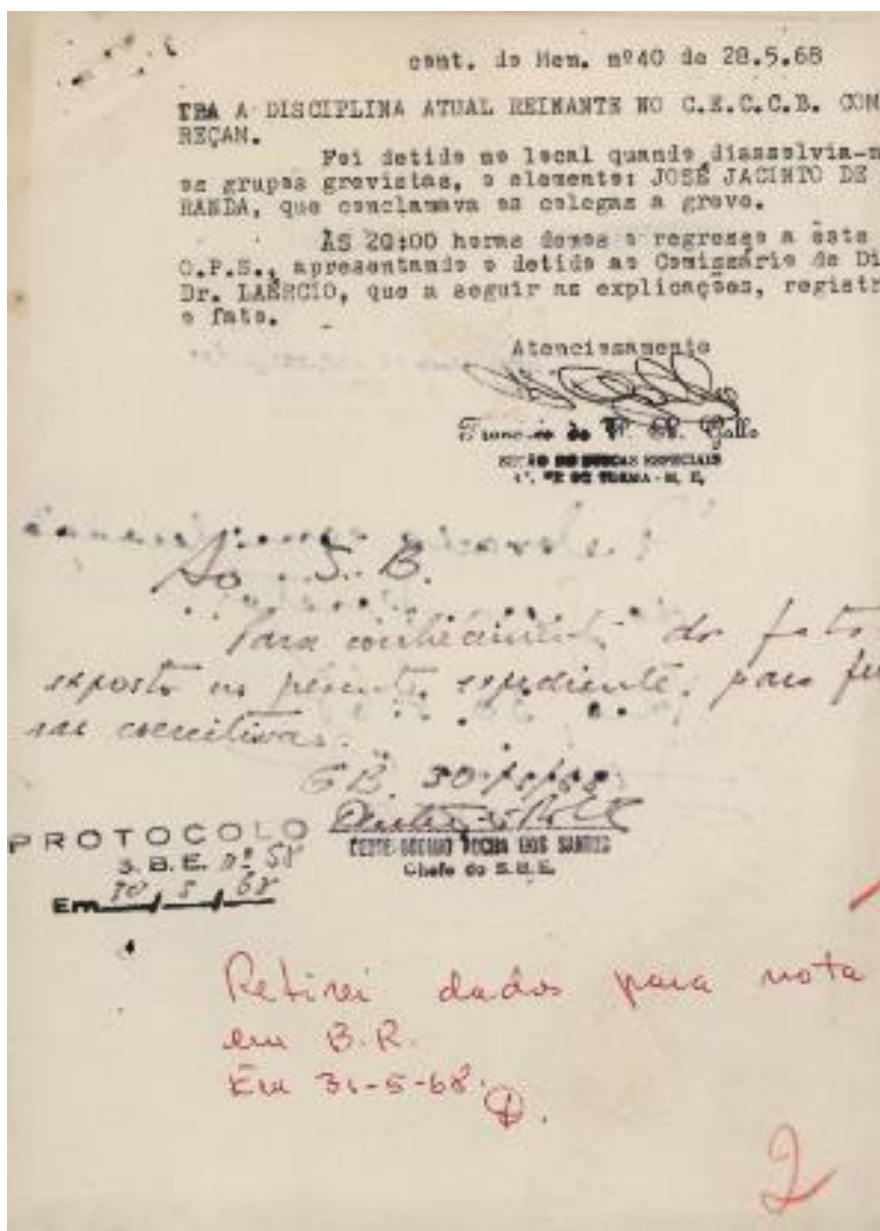 cont. do Mem. nº40 de 28.5.68
TRA A DISCIPLINA ATUAL REINANTE NO C.E.C.C.B. COM
REÇAM.
Foi detido no local quando dissolvia-m
os grupos grevistas, o elemento: JOSÉ JACINTO DE
RANDA, que conclamava os colegas a greve.
ÀS 20:00 horas demos o regresso a este
O.P.S., apresentando o detido ao Comissário de Di
Dr. LAÉRCIO, que a seguir as explicações, registr
o fato.
Atenciosamente
Francisco de
SEÇÃO DE BUSCAS ESPECIAIS
DE TURMA - M. E.
Ao S. B.
Para conhecimento do fato
exposto no presente expediente, para
coercitivas.
GB. 30
PROTOCOLO
S.B.E. nº 58
Em 30 / 5 / 68
ROCHA DOS SANTOS
Chefe do S.B.E.
Retirei dados para nota
em B.R.
Em 31-5-68.
2